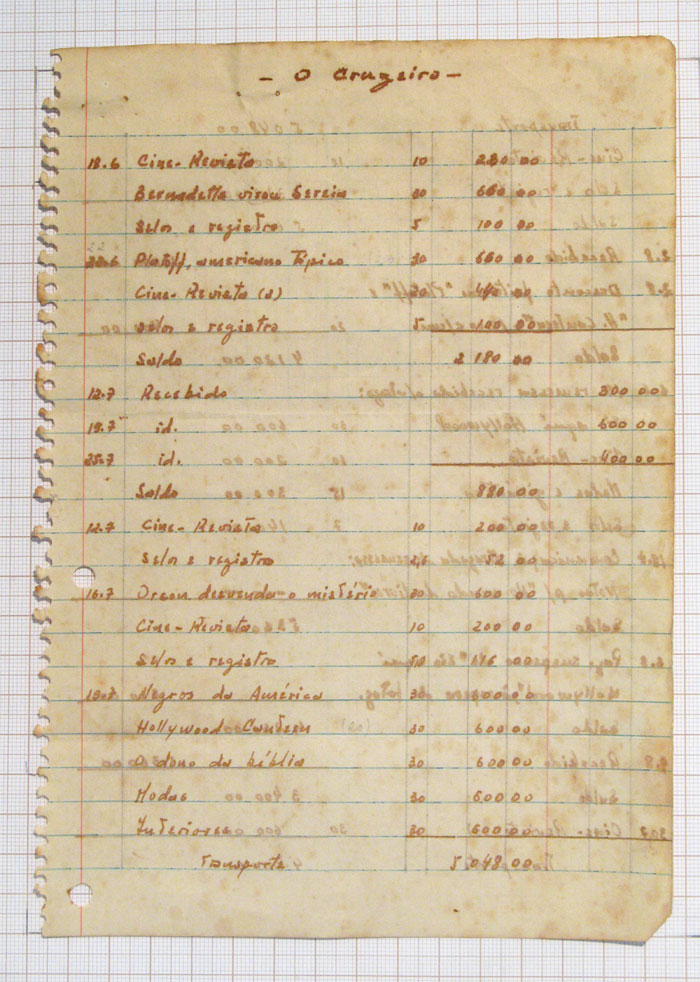 - O Cruzeiro -
18.6 Cine-Revista 10 280 00
Bernadette virou Sereia 30 600 00
Selos e registro 5 100 00
22.6 Platoff, americano típico 30 600 00
Cine-Revista (2)
Selos e registro 5 100 00
Saldo 2 180 00
12.7 Recebido 300 00
19.7 id. 600 00
25.7 id. 400 00
Saldo 880 00
12.7 Cine-Revista 10 200 00
Selos e registro 52 00
16.7 Orson desvenda o mistério 30 600 00
Cine-Revista 10 200 00
Selos e registro 116 00
Negros da América 30 600 00
Hollywood Canteen 30 600 00
O dono da bíblia 30 600 00
Modas 30 600 00
Interiores 30 600 00
Transporte 5 048 00